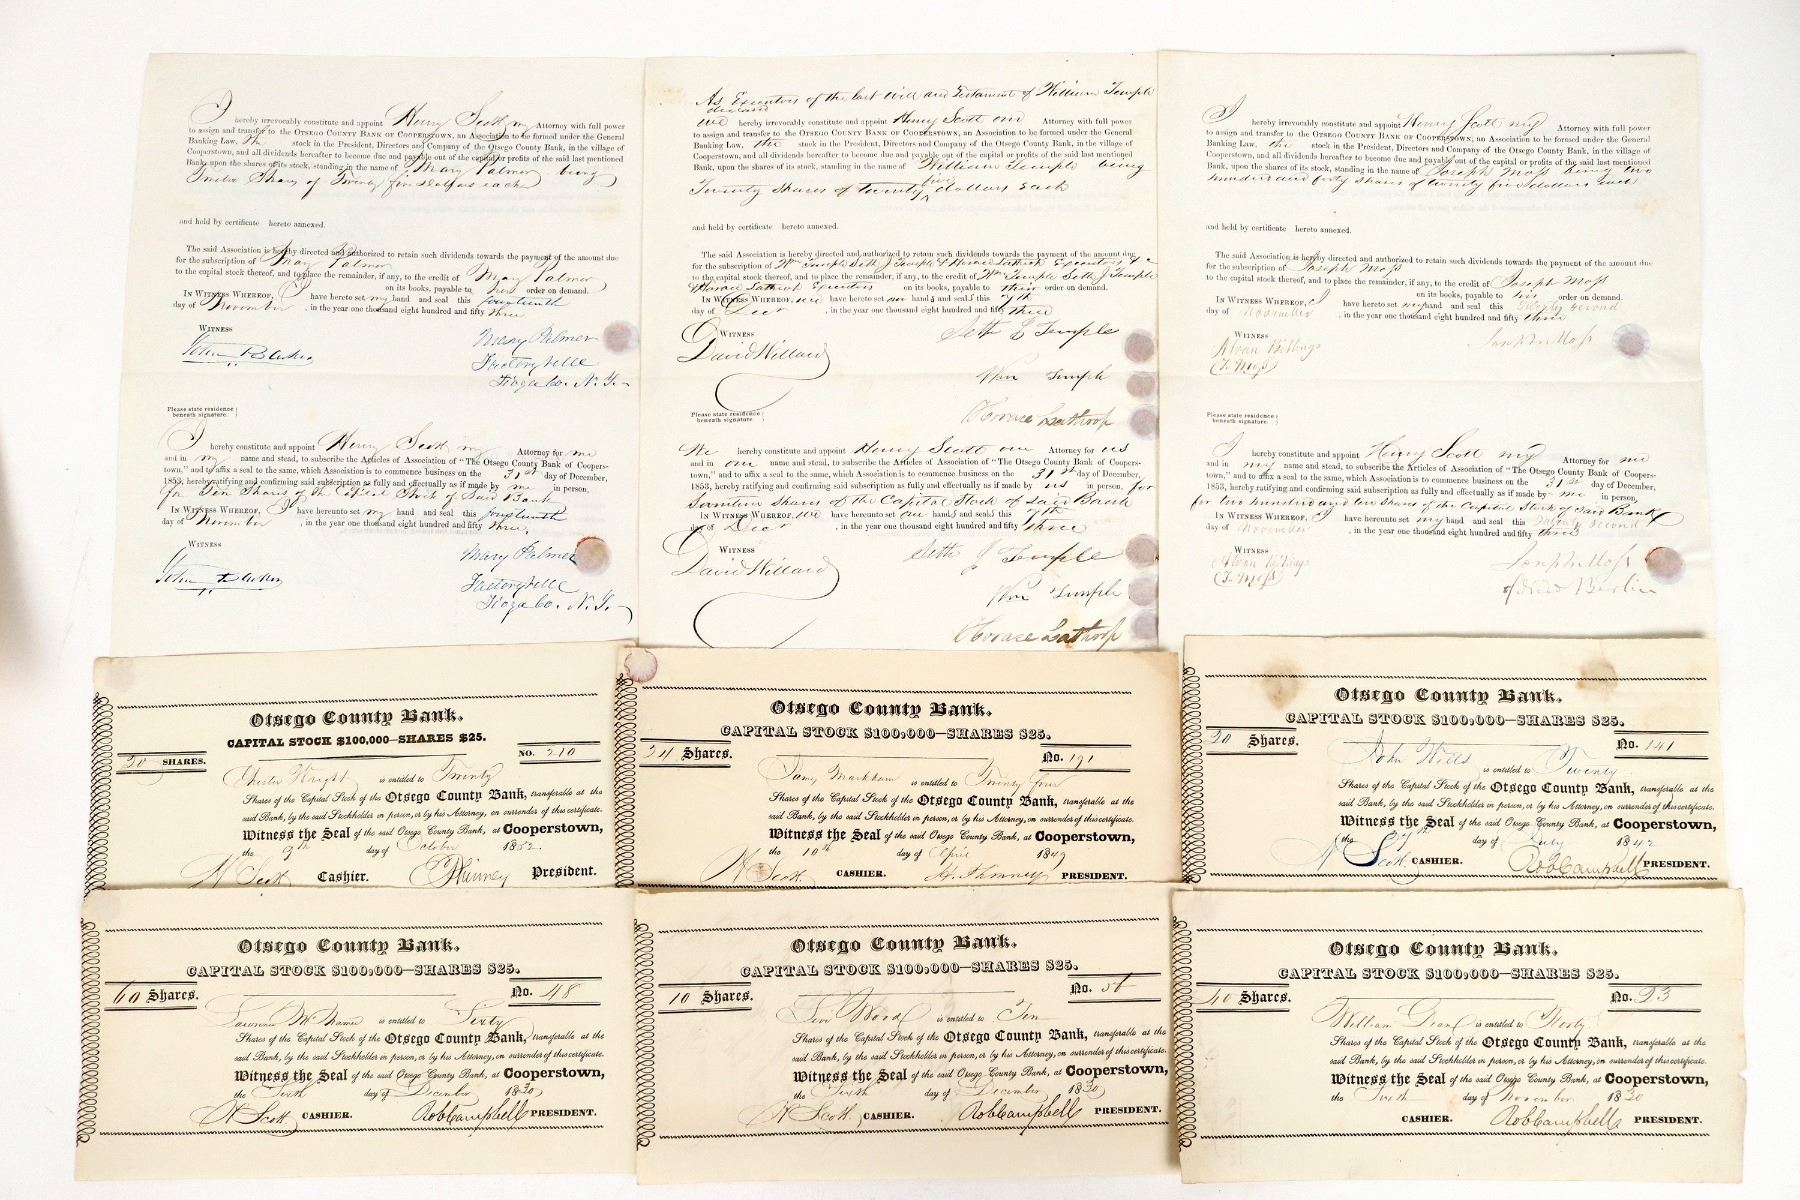 I hereby irrevocably constitute and appoint Henry Scott my Attorney with full power
to assign and transfer to the OTSEGO COUNTY BANK OF COOPERSTOWN, an Association to be formed under the General
Banking Law, the stock in the President, Directors and Company of the Otsego County Bank, in the village of
Cooperstown, and all dividends hereafter to become due and payable out of the capital or profits of the said last mentioned
Bank, upon the shares of its stock, standing in the name of Mary Palmer being
Twelve Shares of Twenty five dollars each
and held by certificate hereto annexed.
The said Association is hereby directed and authorized to retain such dividends towards the payment of the amount due
for the subscription of Mary Palmer
to the capital stock thereof, and to place the remainder, if any, to the credit of Mary Palmer
on its books, payable to her order on demand.
IN WITNESS WHEREOF, I have hereto set my hand and seal this fourteenth
day of November, in the year one thousand eight hundred and fifty three
WITNESS
Mary Palmer
Factoryville
Tioga Co. N. Y.
Please state residence
beneath signature.
I hereby constitute and appoint Henry Scott my Attorney for me
and in my name and stead, to subscribe the Articles of Association of "The Otsego County Bank of Coopers-
town," and to affix a seal to the same, which Association is to commence business on the 31st day of December,
1853, hereby ratifying and confirming said subscription as fully and effectually as if made by me in person,
for Ten Shares of the Capital Stock of Said Bank
IN WITNESS WHEREOF, I have hereunto set my hand and seal this fourteenth
day of November, in the year one thousand eight hundred and fifty three.
WITNESS
Mary Palmer
Factoryville
Tioga Co. N. Y.
As Executors of the last will and Testament of William Temple
deceased
we hereby irrevocably constitute and appoint Henry Scott our Attorney with full power
to assign and transfer to the OTSEGO COUNTY BANK OF COOPERSTOWN, an Association to be formed under the General
Banking Law, the stock in the President, Directors and Company of the Otsego County Bank, in the village of
Cooperstown, and all dividends hereafter to become due and payable out of the capital or profits of the said last mentioned
Bank, upon the shares of its stock, standing in the name of William Temple being
Twenty Shares of twenty five dollars each
and held by certificate hereto annexed.
The said Association is hereby directed and authorized to retain such dividends towards the payment of the amount due
for the subscription of Wm Temple Seth J Temple & Horace Lathrop Executors
to the capital stock thereof, and to place the remainder, if any, to the credit of Wm Temple Seth J Temple
Horace Lathrop Executors on its books, payable to their order on demand.
IN WITNESS WHEREOF, we have hereto set our hands and seals this 7th
day of Decr, in the year one thousand eight hundred and fifty three
WITNESS
David Willard
Seth J Temple
Wm Temple
Horace Lathrop
Please state residence
beneath signature.
We hereby constitute and appoint Henry Scott our Attorney for us
and in our name and stead, to subscribe the Articles of Association of "The Otsego County Bank of Coopers-
town," and to affix a seal to the same, which Association is to commence business on the 31st day of December,
1853, hereby ratifying and confirming said subscription as fully and effectually as if made by us in person, for
Shares of the Capital Stock of said Bank
IN WITNESS WHEREOF, we have hereunto set our hands and seals this 7th
day of Decr, in the year one thousand eight hundred and fifty three
WITNESS
David Willard
Seth J Temple
Wm Temple
Horace Lathrop
I hereby irrevocably constitute and appoint Henry Scott my Attorney with full power
to assign and transfer to the OTSEGO COUNTY BANK OF COOPERSTOWN, an Association to be formed under the General
Banking Law, the stock in the President, Directors and Company of the Otsego County Bank, in the village of
Cooperstown, and all dividends hereafter to become due and payable out of the capital or profits of the said last mentioned
Bank, upon the shares of its stock, standing in the name of Joseph Moss being two
hundred and forty shares of twenty five dollars each
and held by certificate hereto annexed.
The said Association is hereby directed and authorized to retain such dividends towards the payment of the amount due
for the subscription of Joseph Moss
to the capital stock thereof, and to place the remainder, if any, to the credit of Joseph Moss
on its books, payable to his order on demand.
IN WITNESS WHEREOF, I have hereto set my hand and seal this twenty second
day of November, in the year one thousand eight hundred and fifty three
WITNESS
Alvan Billings
Joseph Moss
Please state residence
beneath signature.
I hereby constitute and appoint Henry Scott my Attorney for me
and in my name and stead, to subscribe the Articles of Association of "The Otsego County Bank of Coopers-
town," and to affix a seal to the same, which Association is to commence business on the 31st day of December,
1853, hereby ratifying and confirming said subscription as fully and effectually as if made by me in person,
for two hundred and ten Shares of the Capital Stock of said Bank
IN WITNESS WHEREOF, I have hereunto set my hand and seal this twenty second
day of November, in the year one thousand eight hundred and fifty three
WITNESS
Alvan Billings
Joseph Moss
of New Berlin
Otsego County Bank.
CAPITAL STOCK $100,000—SHARES $25.
20 SHARES.
NO. 210
Chester Wright is entitled to Twenty
Shares of the Capital Stock of the Otsego County Bank, transferable at the
said Bank, by the said Stockholder in person, or by his Attorney, on surrender of this certificate.
Witness the Seal of the said Otsego County Bank, at Cooperstown,
the 9th day of October 1852.
H Scott Cashier. E Phinney President.
Otsego County Bank.
CAPITAL STOCK $100,000—SHARES $25.
24 Shares.
No. 191
Markham is entitled to Twenty four
Shares of the Capital Stock of the Otsego County Bank, transferable at the
said Bank, by the said Stockholder in person, or by his Attorney, on surrender of this certificate.
Witness the Seal of the said Otsego County Bank, at Cooperstown,
the 10th day of April 1849
H Scott CASHIER. H. Phinney PRESIDENT.
Otsego County Bank.
CAPITAL STOCK $100,000—SHARES $25.
20 Shares.
No. 141
John Wills is entitled to Twenty
Shares of the Capital Stock of the Otsego County Bank, transferable at the
said Bank, by the said Stockholder in person, or by his Attorney, on surrender of this certificate.
Witness the Seal of the said Otsego County Bank, at Cooperstown,
the day of July 1842
H Scott CASHIER. Rob Campbell PRESIDENT.
Otsego County Bank.
CAPITAL STOCK $100,000—SHARES $25.
60 Shares.
No. 48
Lawrence McNamee is entitled to Sixty
Shares of the Capital Stock of the Otsego County Bank, transferable at the
said Bank, by the said Stockholder in person, or by his Attorney, on surrender of this certificate.
Witness the Seal of the said Otsego County Bank, at Cooperstown,
the Sixth day of December 1830
H Scott CASHIER. Rob Campbell PRESIDENT.
Otsego County Bank.
CAPITAL STOCK $100,000—SHARES $25.
10 Shares.
No.
Levi Wood is entitled to Ten
Shares of the Capital Stock of the Otsego County Bank, transferable at the
said Bank, by the said Stockholder in person, or by his Attorney, on surrender of this certificate.
Witness the Seal of the said Otsego County Bank, at Cooperstown,
the Sixth day of December 1830
H Scott CASHIER. Rob Campbell PRESIDENT.
Otsego County Bank.
CAPITAL STOCK $100,000—SHARES $25.
40 Shares.
No. 23
William Dean is entitled to Forty
Shares of the Capital Stock of the Otsego County Bank, transferable at the
said Bank, by the said Stockholder in person, or by his Attorney, on surrender of this certificate.
Witness the Seal of the said Otsego County Bank, at Cooperstown,
the Sixth day of November 1830
CASHIER. Rob Campbell PRESIDENT.